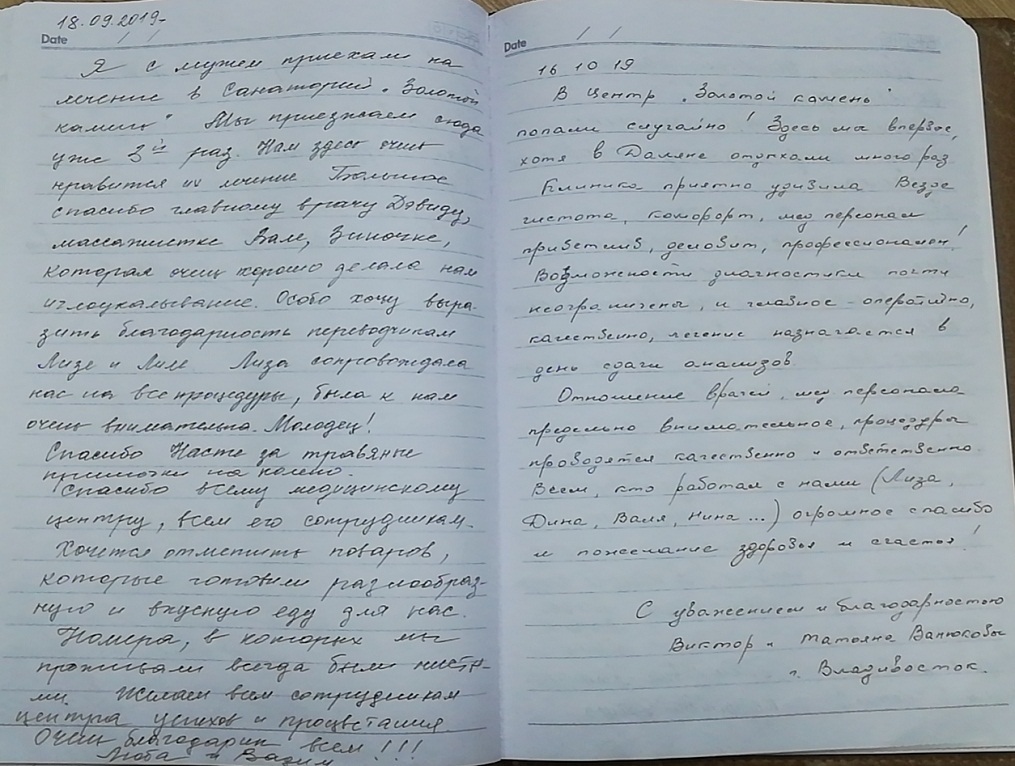 18.09.2019.
Date / /
Я с мужем приехали на
лечение в Санаторий „Золотой
камень" Мы приезжаем сюда
уже 3й раз. Нам здесь очень
нравится их лечение Большое
спасибо главному врачу Дэвиду,
массажистке Вале, Зиночке,
которая очень хорошо делала нам
иглоукалывание. Особо хочу выра-
зить благодарность переводчикам
Лизе и Лиле Лиза сопровождала
нас на все процедуры, была к нам
очень внимательна. Молодец!
Спасибо Насте за травяные
примочки на колено.
Спасибо всему медицинскому
центру, всем его сотрудникам.
Хочется отметить поваров,
которые готовили разнообраз
ную и вкусную еду для нас.
Номера, в которых мы
проживали всегда были чисты-
ми. Желаем всем сотрудникам
центра успехов и процветания.
Очень благодарим всем!!!
Люба и Вадим
Date / /
16 10 19
В Центр „Золотой камень"
попали случайно! Здесь мы впервые,
хотя в Даляне отдыхали много раз
Клиника приятно удивила Везде
чистота, комфорт, мед персонал
приветлив, деловит, профессионален!
Возможности диагностики почти
неограничены, и главное - оперативно,
качественно, лечение назначается в
день сдачи анализов.
Отношение врачей, мед персонала
предельно внимательное, процедуры
проводятся качественно и ответственно.
Всем, кто работал с нами (Лиза,
Дина, Валя, Нина...) огромное спасибо
и пожелание здоровья и счастья!
С уважением и благодарностью
Виктор и Татьяна Ванюковы
г. Владивосток.